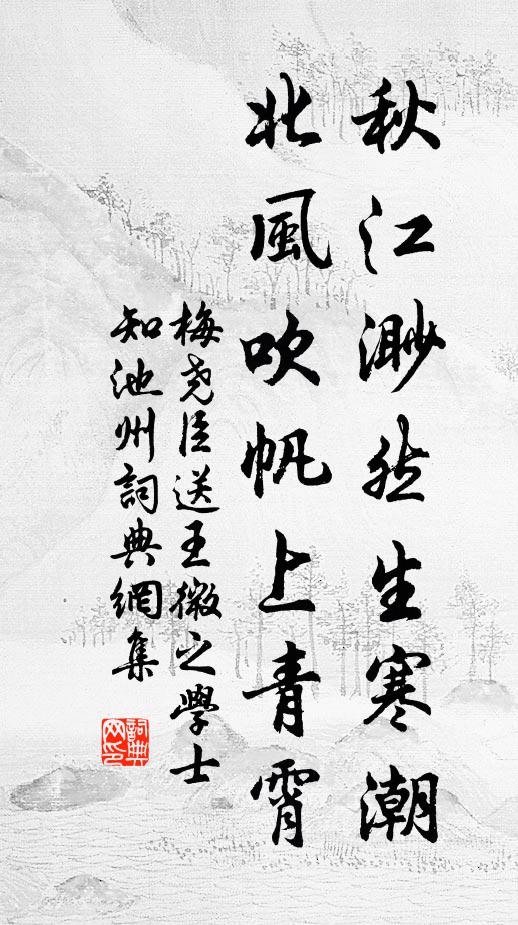 秋江渺然生寒潮
北風吹帆上青霄
梅尧臣送王微之學士
知池州詞典網集
詞典網印